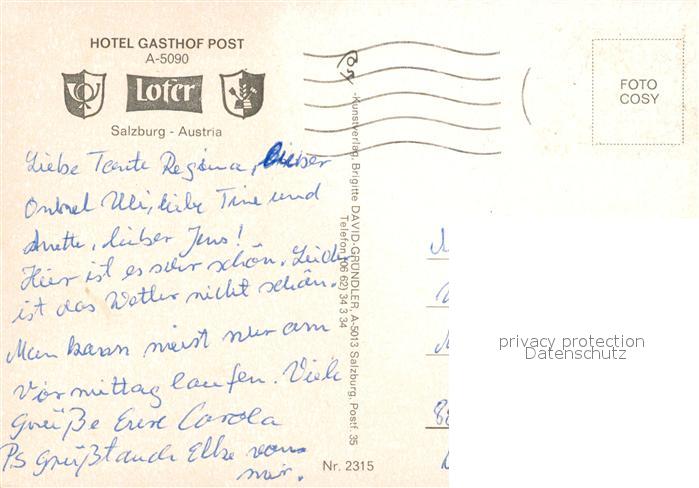 HOTEL GASTHOF POST
A-5090
Lofer
Salzburg - Austria
Liebe Tante Regina, lieber
Onkel Uli, liebe Tine und
Anette, lieber Jens!
Hier ist es sehr schön. Leider
ist das Wetter nicht schön.
Man kann meist nur am
Vormittag laufen. Viele
Grüße Eure Carola
PS Grüßt auch Elke von
mir.
Kunstverlag, Brigitte DAVID-GRÜNDLER, A-5013 Salzburg, Postf. 35
Telefon (06 62) 34 3 34
Nr. 2315
FOTO
COSY
privacy protection
Datenschutz